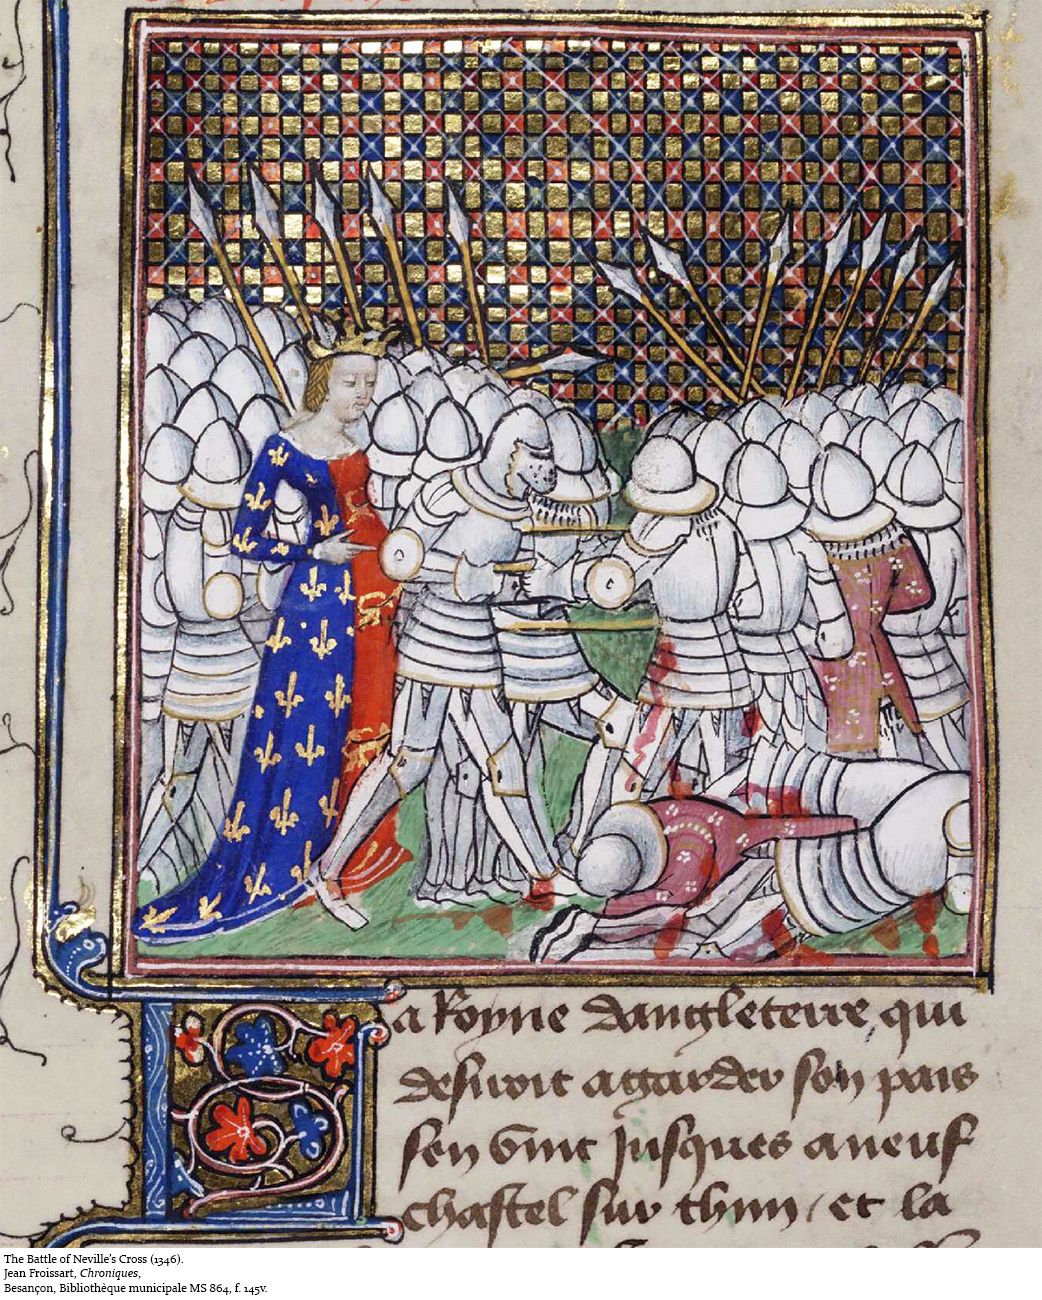 La Royne dangleterre, qui
desiroit a garder son pais
sen vint Jusques a neuf
chastel sur thin / et la
The Battle of Neville’s Cross (1346).
Jean Froissart, Chroniques,
Besançon, Bibliothèque municipale MS 864, f. 145v.